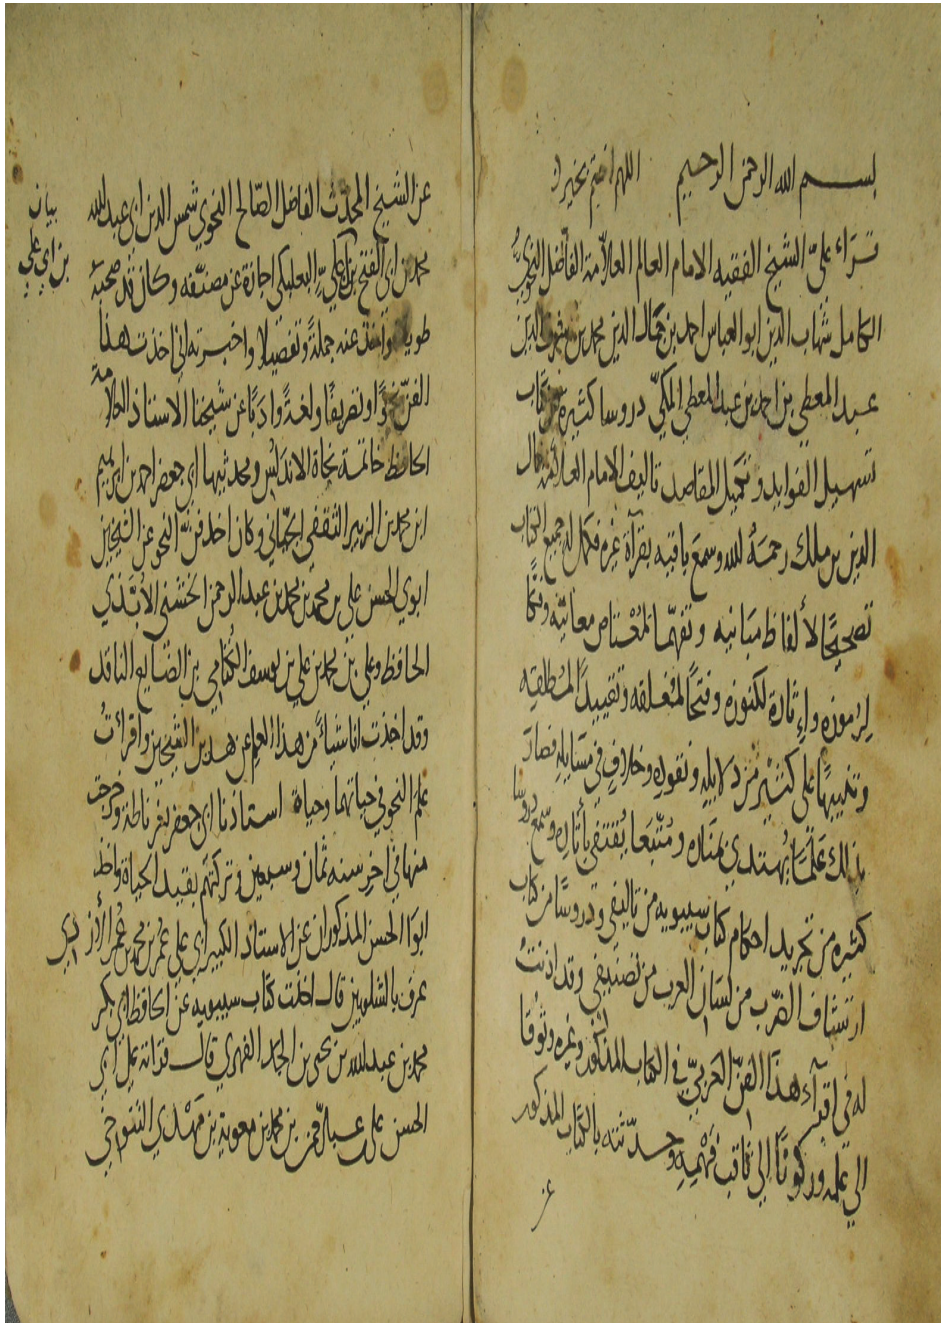 بسم الله الرحمن الرحيم اللهم اختم بخير
قراء علي الشيخ الفقيه الامام العالم العلامة الفاضل النحوي
الكامل شهاب الدين ابو العباس احمد بن جمال الدين محمد بن الدين
عبد المعطي بن احمد بن عبد المعطي المكي دروسا كثيرة من كتاب
تسهيل الفوايد وتكميل المقاصد تاليف الامام العلامة جمال
الدين بن ملك رحمه الله وسمع باقيه بقرآة غيره فكمل له جميع الكتاب
تصحيحًا لألفاظ مبانيه وتفهما لمعتاص معانيه وفكًّا
لرموزه واثارة لكنوزه وفتحًا لمغلقه وتقييدًا لمطلقه
وتنبيهًا على كثير من دلايله ونقوله وخلاف في مسايله فصار
بذلك علمًا يهتدى بمناره ومتبعا يقتفى بأثاره وسمع دروسا
كثيرة من تجريد احكام كتاب سيبويه من تاليفي ودروسًا من كتاب
ارتشاف الضرب من لسان العرب من تصنيفي وقد اذنت
له في اقرآء هذا الفن العربي في الكتاب المذكور وغيره وثوقا
الي علمه وركونًا الي ثاقب فهمه وحدثته بالكتاب المذكور
عن
عن الشيخ المحدث الفاضل الصالح النحوي شمس الدين ابي عبد الله
محمد بن ابي الفتح بن ابي علي البعلبكي اجازة عن مصنفه وكان قد صحبه
بيان
بن ابي علي
طويلا واخذ عنه جملة وتفصيلا واخبرته اني اخذت هذا
الفن نحوًا وتصريفًا ولغةً وادبًا عن شيخنا الاستاذ العلامة
الحافظ خاتمة نحاة الاندلس ومحدثيها ابي جعفر احمد بن ابرهيم
ابن محمد بن الزبير الثقفي الجياني وكان اخذ فن النحو عن الشيخين
ابوي الحسن علي بن محمد بن محمد بن عبد الرحمن الخشني الأبّذي
الحافظ وعلي بن محمد بن علي بن يوسف الكتامي بن الضايع الناقد
وقد اخذت انا شياءً من هذا العلم عن هذين الشيخين واقرأتُ
علم النحو في حياتهما وحياة استاذنا ابي جعفر بغرناطة وخرجت
منها في اخر سنه ثمان وسبعين وتركتهم بقيد الحياة واخذ
ابوا الحسن المذكوران عن الاستاذ الكبير ابي علي عمر بن محمد بن عمر الأزدي
عرف بالشلوبين قال اخذت كتاب سيبويه عن الحافظ ابي بكر
محمد بن عبد الله بن يحيى بن الجد الفهري قال قراته على ابي
الحسن علي بن عبد الرحمن بن محمد بن معوية بن مهدي التنوخي